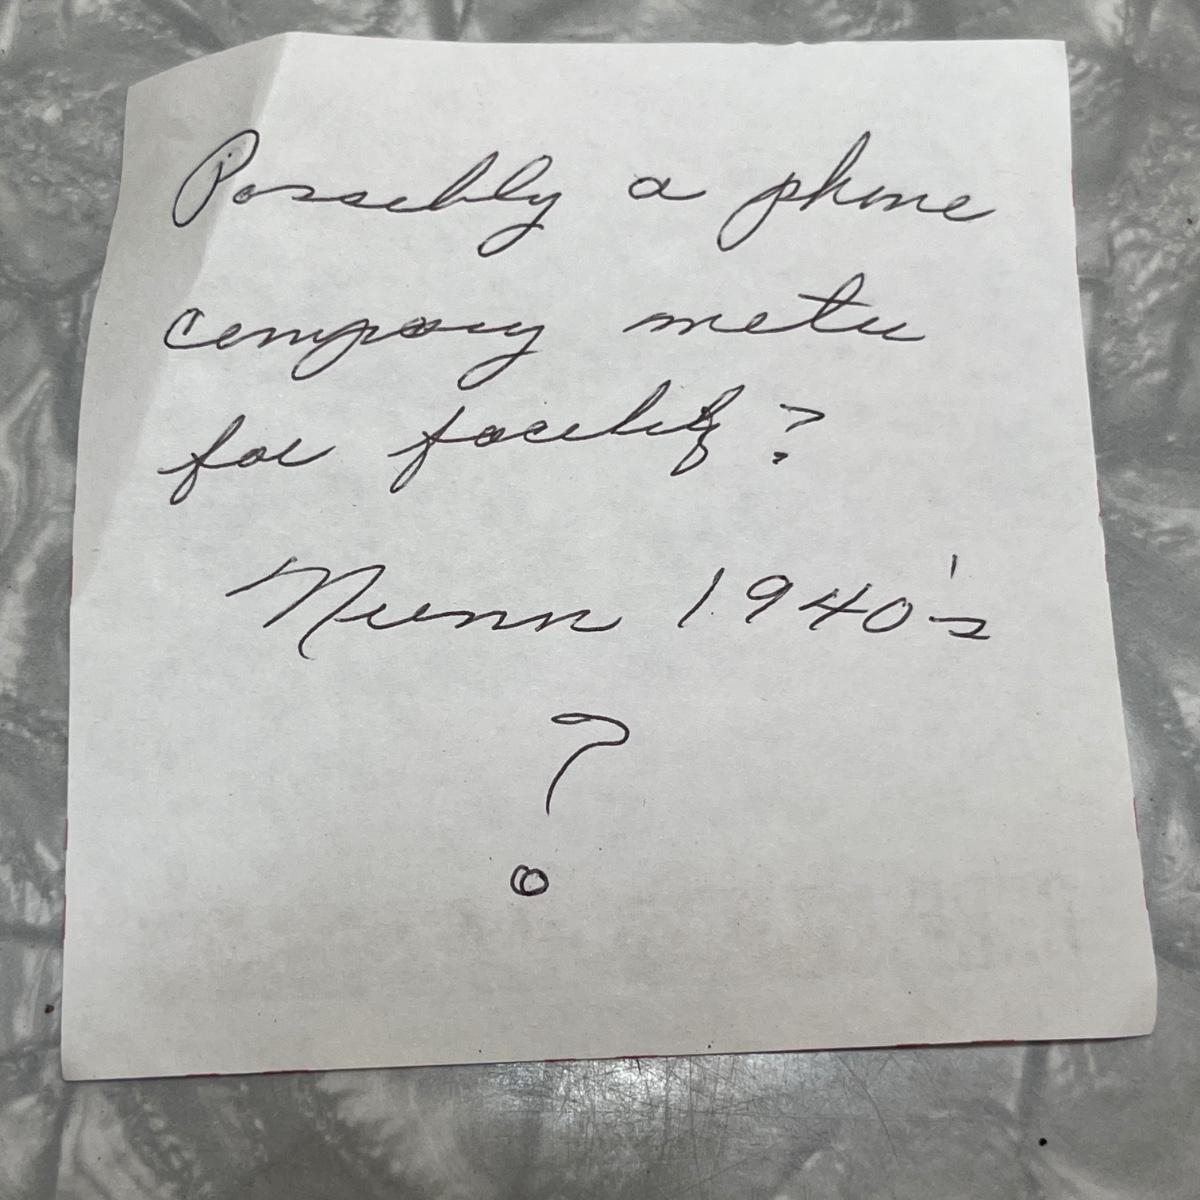 Possibly a phone
company meter
for facility?
Nunn 1940's
?